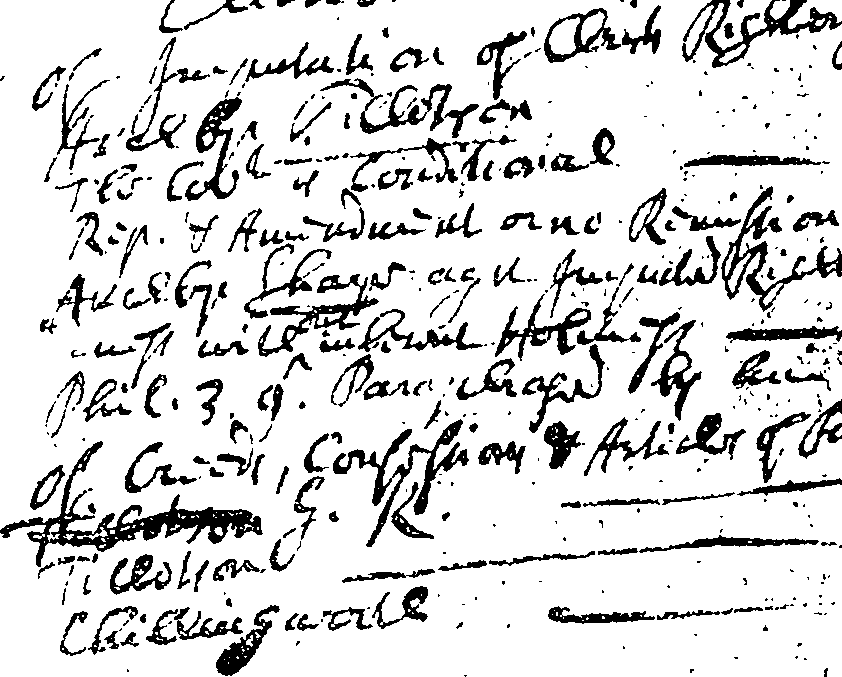 of Imputation of Christs Righteous
Arch bp. Tillotson
The Covt is Conditional
Rep. & Amendment or no Remission
Arch bp Sharp agst Imputed Right
-ness without inherent Holiness
Phil. 3. 9. Paraphrased by him
of Creeds, Confessions & Articles of
G. R.
Tillotson
Chillingworth